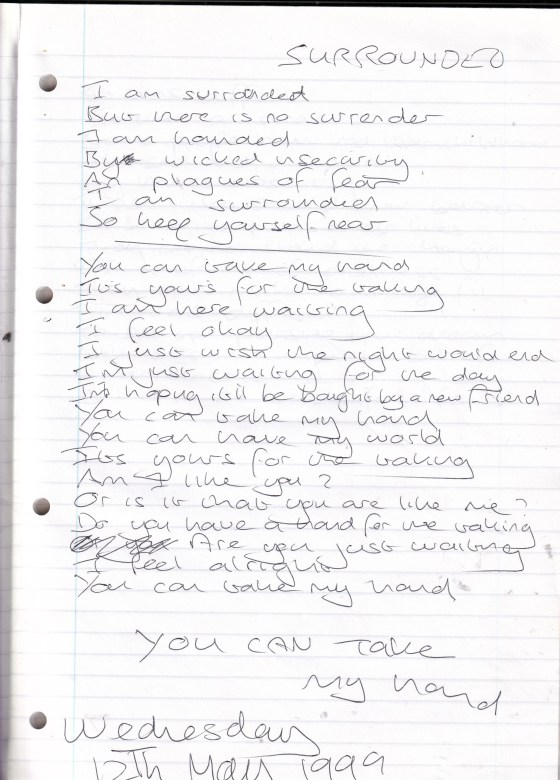 SURROUNDED
I am surrounded
But there is no surrender
I am hounded
By wicked insecurity
And plagues of fear
I am surrounded
So keep yourself near
You can take my hand
It's yours for the taking
I am here waiting
I feel okay
I just wish the night would end
I'm just waiting for the day
I'm hoping it'll be bought by a new friend
You can take my hand
You can have my world
It's yours for the taking
Am I like you?
Or is it that you are like me?
Do you have a hand for the taking
Are you just waiting
I feel alright
You can take my hand
YOU CAN TAKE
my hand
Wednesday
12Th May 1999